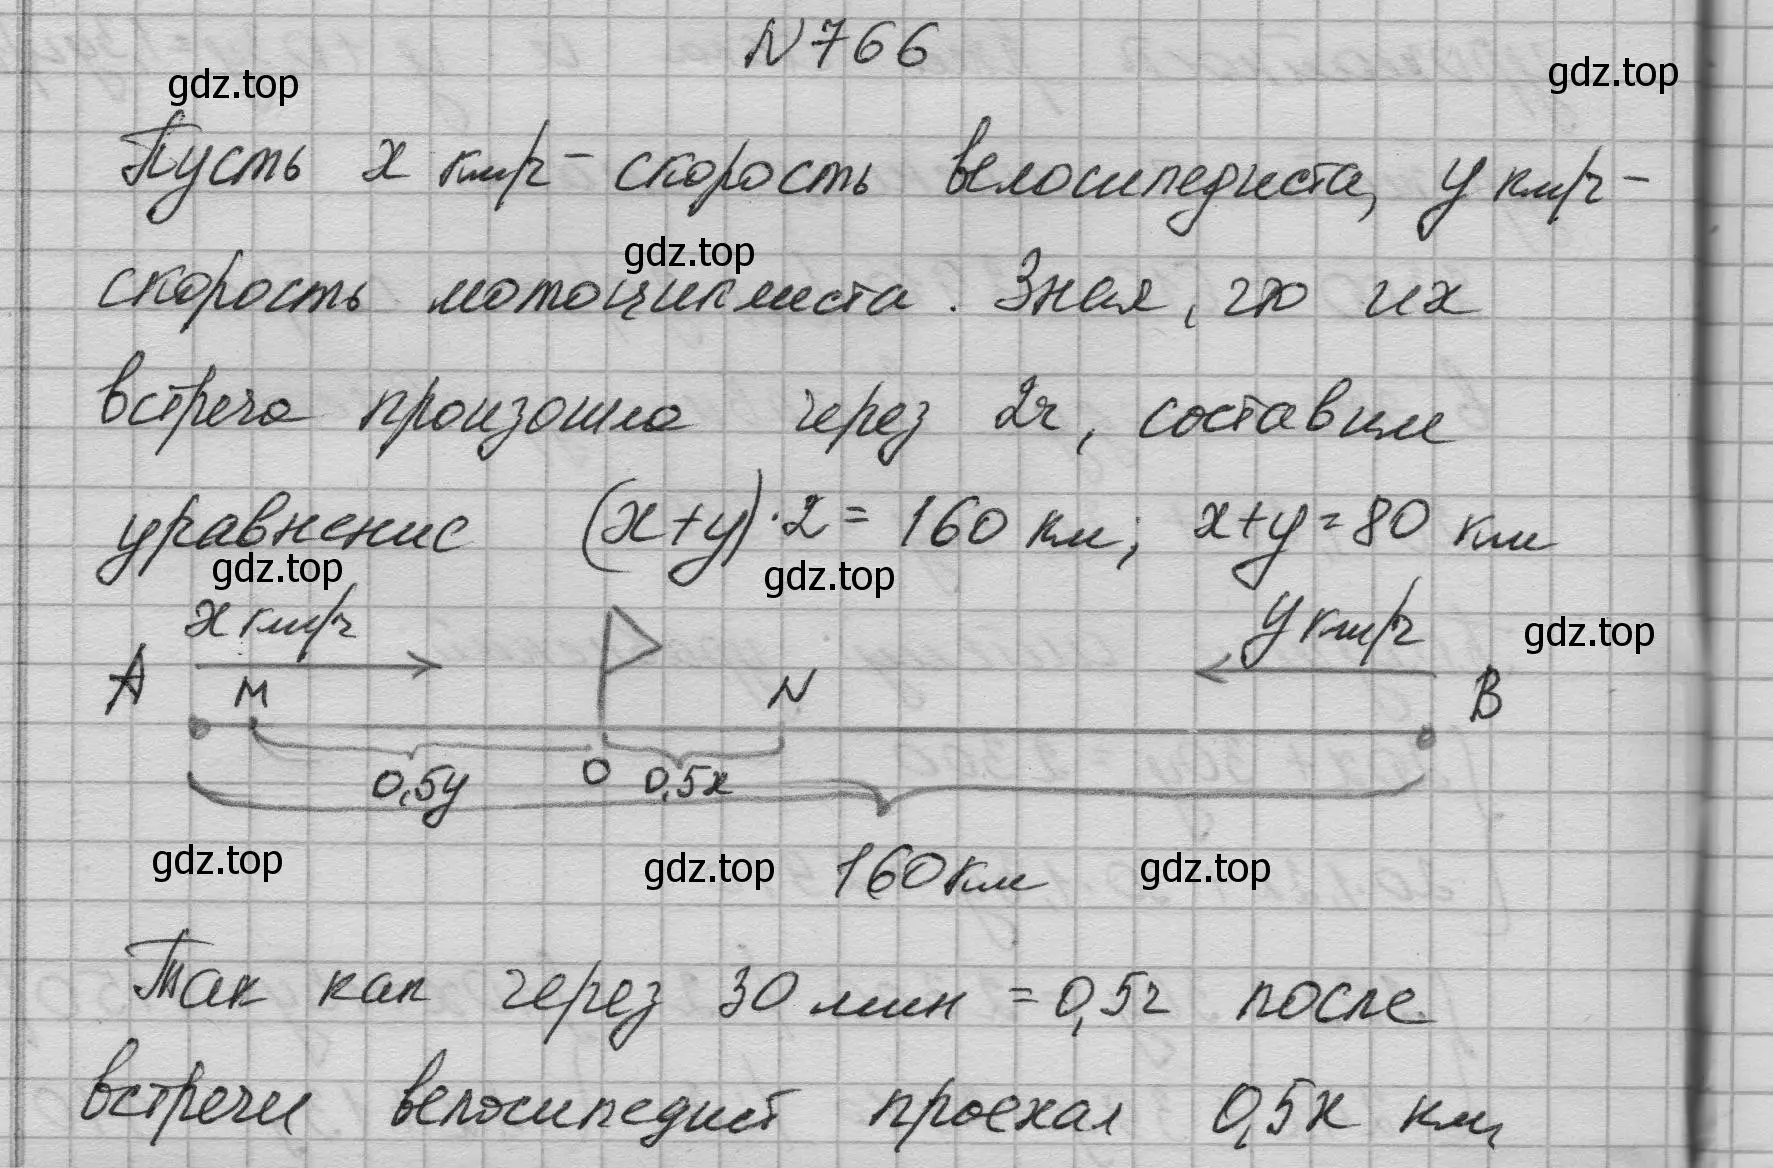 N766
gdz.top
gdz.top
Пусть x км/ч – скорость велосипедиста, y км/ч –
gdz.top
скорость мотоциклиста. Зная, что их
встреча произошла через 2ч, составим
уравнение (x+y)·2 = 160 км; x+y=80 км
gdz.top
gdz.top
x км/ч
y км/ч
gdz.top
A
M
N
B
0,5y
O
0,5x
gdz.top
gdz.top
160 км
gdz.top
Так как через 30 мин = 0,5ч после
встречи велосипедист проехал 0,5x км,